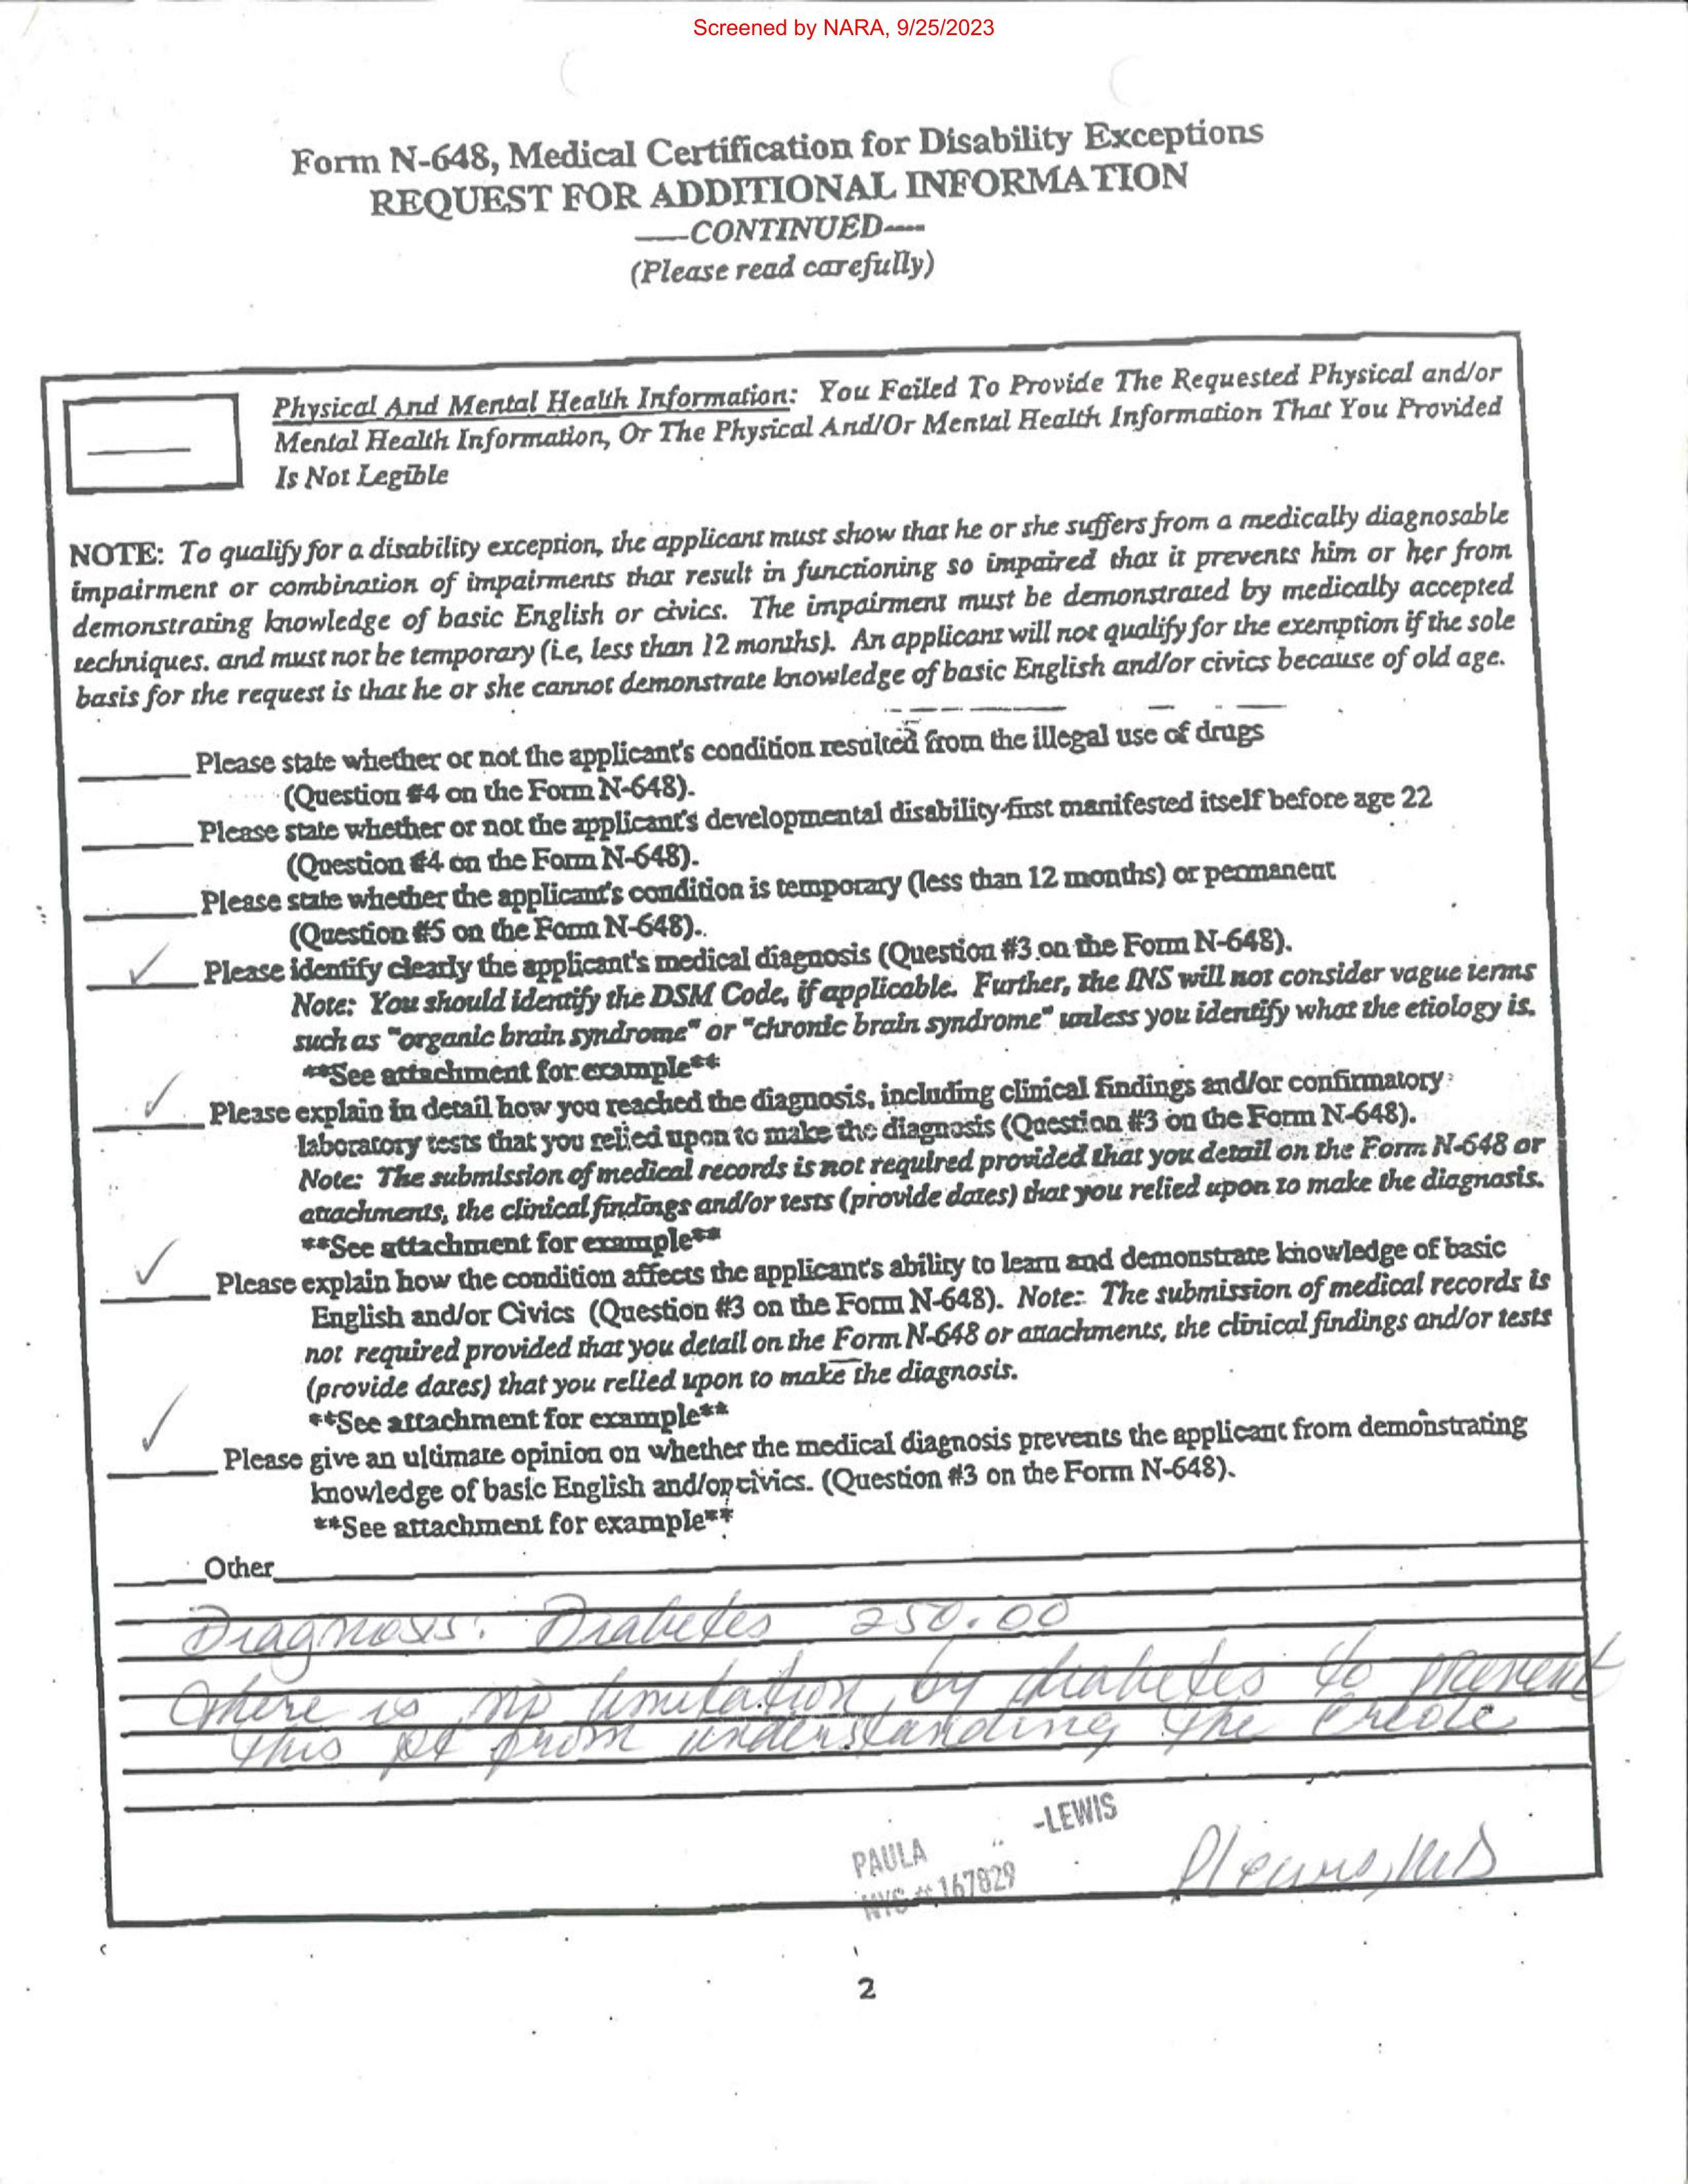 Screened by NARA, 9/25/2023
Form N-648, Medical Certification for Disability Exceptions
REQUEST FOR ADDITIONAL INFORMATION
—CONTINUED----
(Please read carefully)
Physical And Mental Health Information: You Failed To Provide The Requested Physical and/or
Mental Health Information, Or The Physical And/Or Mental Health Information That You Provided
Is Not Legible
NOTE: To qualify for a disability exception, the applicant must show that he or she suffers from a medically diagnosable
impairment or combination of impairments that result in functioning so impaired that it prevents him or her from
demonstrating knowledge of basic English or civics. The impairment must be demonstrated by medically accepted
techniques. and must not be temporary (i.e, less than 12 months). An applicant will not qualify for the exemption if the sole
basis for the request is that he or she cannot demonstrate knowledge of basic English and/or civics because of old age.
Please state whether or not the applicant's condition resulted from the illegal use of drugs
(Question #4 on the Form N-648).
Please state whether or not the applicant's developmental disability-first manifested itself before age 22
(Question #4 on the Form N-648).
Please state whether the applicant's condition is temporary (less than 12 months) or permanent
(Question #5 on the Form N-648)..
✓ Please identify clearly the applicant's medical diagnosis (Question #3 on the Form N-648).
Note: You should identify the DSM Code, if applicable. Further, the INS will not consider vague terms
such as "organic brain syndrome" or "chronic brain syndrome" unless you identify what the etiology is.
**See attachment for example**
✓ Please explain in detail how you reached the diagnosis, including clinical findings and/or confirmatory
laboratory tests that you relied upon to make the diagnosis (Question #3 on the Form N-648).
Note: The submission of medical records is not required provided that you detail on the Form N-648 or
attachments, the clinical findings and/or tests (provide dates) that you relied upon to make the diagnosis.
**See attachment for example**
✓ Please explain how the condition affects the applicant's ability to learn and demonstrate knowledge of basic
English and/or Civics (Question #3 on the Form N-648). Note: The submission of medical records is
not required provided that you detail on the Form N-648 or attachments, the clinical findings and/or tests
(provide dates) that you relied upon to make the diagnosis.
**See attachment for example**
✓ Please give an ultimate opinion on whether the medical diagnosis prevents the applicant from demonstrating
knowledge of basic English and/or civics. (Question #3 on the Form N-648).
**See attachment for example**
Other
Diagnosis: Diabetes 250.00
There is no limitation by diabetes to prevent
this pt from understanding the Creole
PAULA -LEWIS
NYS # 167829
MD
2